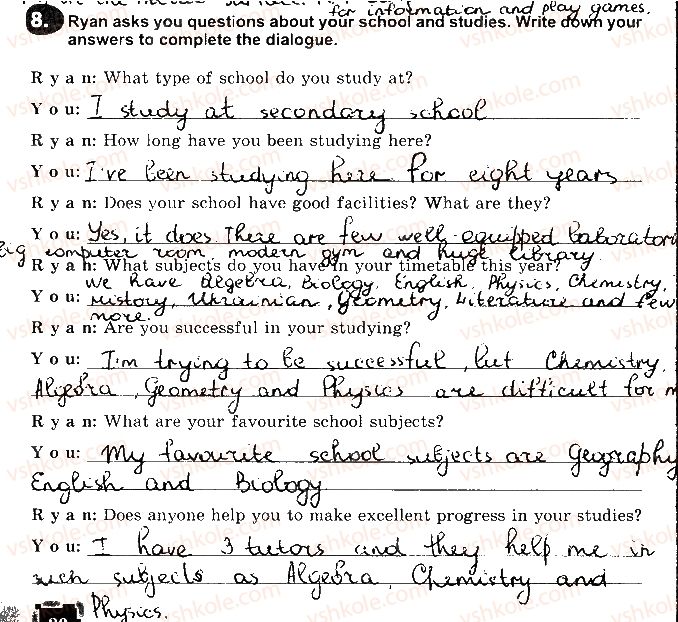 for information and play games.
8. Ryan asks you questions about your school and studies. Write down your
answers to complete the dialogue.
Ryan: What type of school do you study at?
You: I study at secondary school
Ryan: How long have you been studying here?
You: I've been studying here for eight years
Ryan: Does your school have good facilities? What are they?
You: Yes, it does. There are few well-equipped laboratori
big computer room, modern gym and huge library.
Ryan: What subjects do you have in your timetable this year?
we have Algebra, Biology, English, Physics, Chemistry,
You: History, Ukrainian, Geometry, Literature and few
more.
Ryan: Are you successful in your studying?
You: I'm trying to be successful, but Chemistry,
Algebra, Geometry and Physics are difficult for m
Ryan: What are your favourite school subjects?
You: My favourite school subjects are Geography
English and Biology
Ryan: Does anyone help you to make excellent progress in your studies?
You: I have 3 tutors and they help me in
such subjects as Algebra, Chemistry and
Physics.